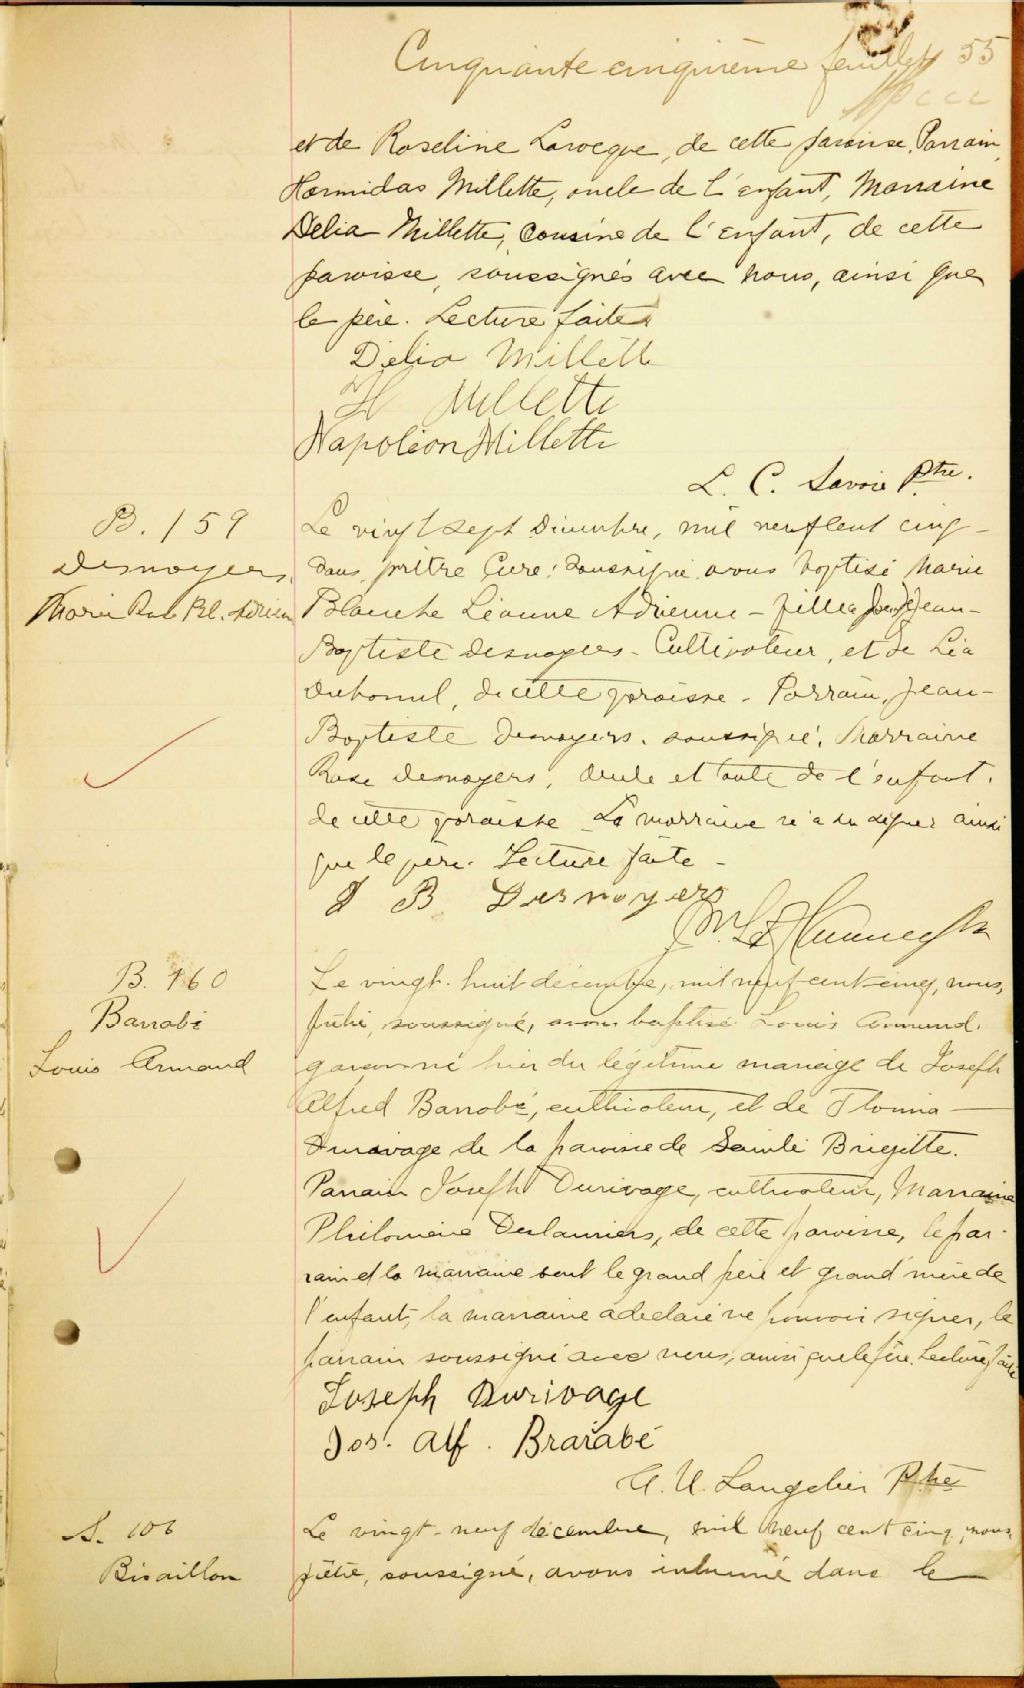 Cinquante cinquième feuillet 55
et de Roseline Larocque, de cette paroisse. Parrain,
Hormidas Millette, oncle de l'enfant, Marraine
Délia Millette, cousine de l'enfant, de cette
paroisse, soussignés avec nous, ainsi que
le père. Lecture faite.
Délia Millette
H Millette
Napoléon Millette
L. C. Savoie Ptre.
B. 159
Desnoyers
Marie
Le vingt sept Décembre, mil neuf cent cinq -
nous, prêtre Curé, soussigné avons baptisé Marie
Blanche Léanne Adrienne - fille de Jean-
Baptiste Desnoyers - Cultivateur, et de Léa
de cette paroisse - Parrain, Jean-
Baptiste Desnoyers, soussigné, Marraine
Rose Desnoyers, oncle et tante de l'enfant.
de cette paroisse - La marraine n'a su signer ainsi
que le père. Lecture faite -
J B Desnoyers
B. 160
Barrabé
Louis Armand
Le vingt-huit décembre, mil neuf cent cinq, nous,
prêtre, soussigné, avons baptisé Louis Armand,
garçon né hier du légitime mariage de Joseph
Alfred Barrabé, cultivateur, et de Florina -
Durivage de la paroisse de Sainte Brigitte.
Parrain Joseph Durivage, cultivateur, Marraine
Philomène Deslauriers, de cette paroisse, le par-
rain et la marraine sont le grand père et grand'mère de
l'enfant, la marraine a déclaré ne pouvoir signer, le
parrain soussigné avec nous, ainsi que le père. Lecture faite
Joseph Durivage
Jos. Alf. Brarabé
U. Langelier Ptre
S. 106
Bisaillon
Le vingt-neuf décembre, mil neuf cent cinq, nous,
prêtre, soussigné, avons inhumé dans le